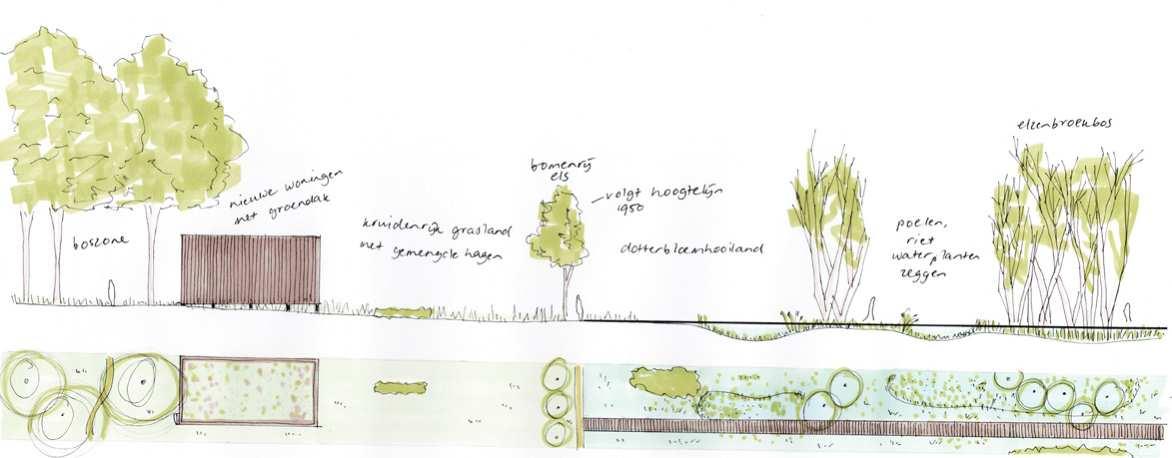 boszone
nieuwe woningen
met groendak
kruidenrijk grasland
met gemengde hagen
bomenrij
els
volgt hoogtelijn
1950
dotterbloemhooiland
poelen,
riet
waterplanten
zeggen
elzenbroekbos